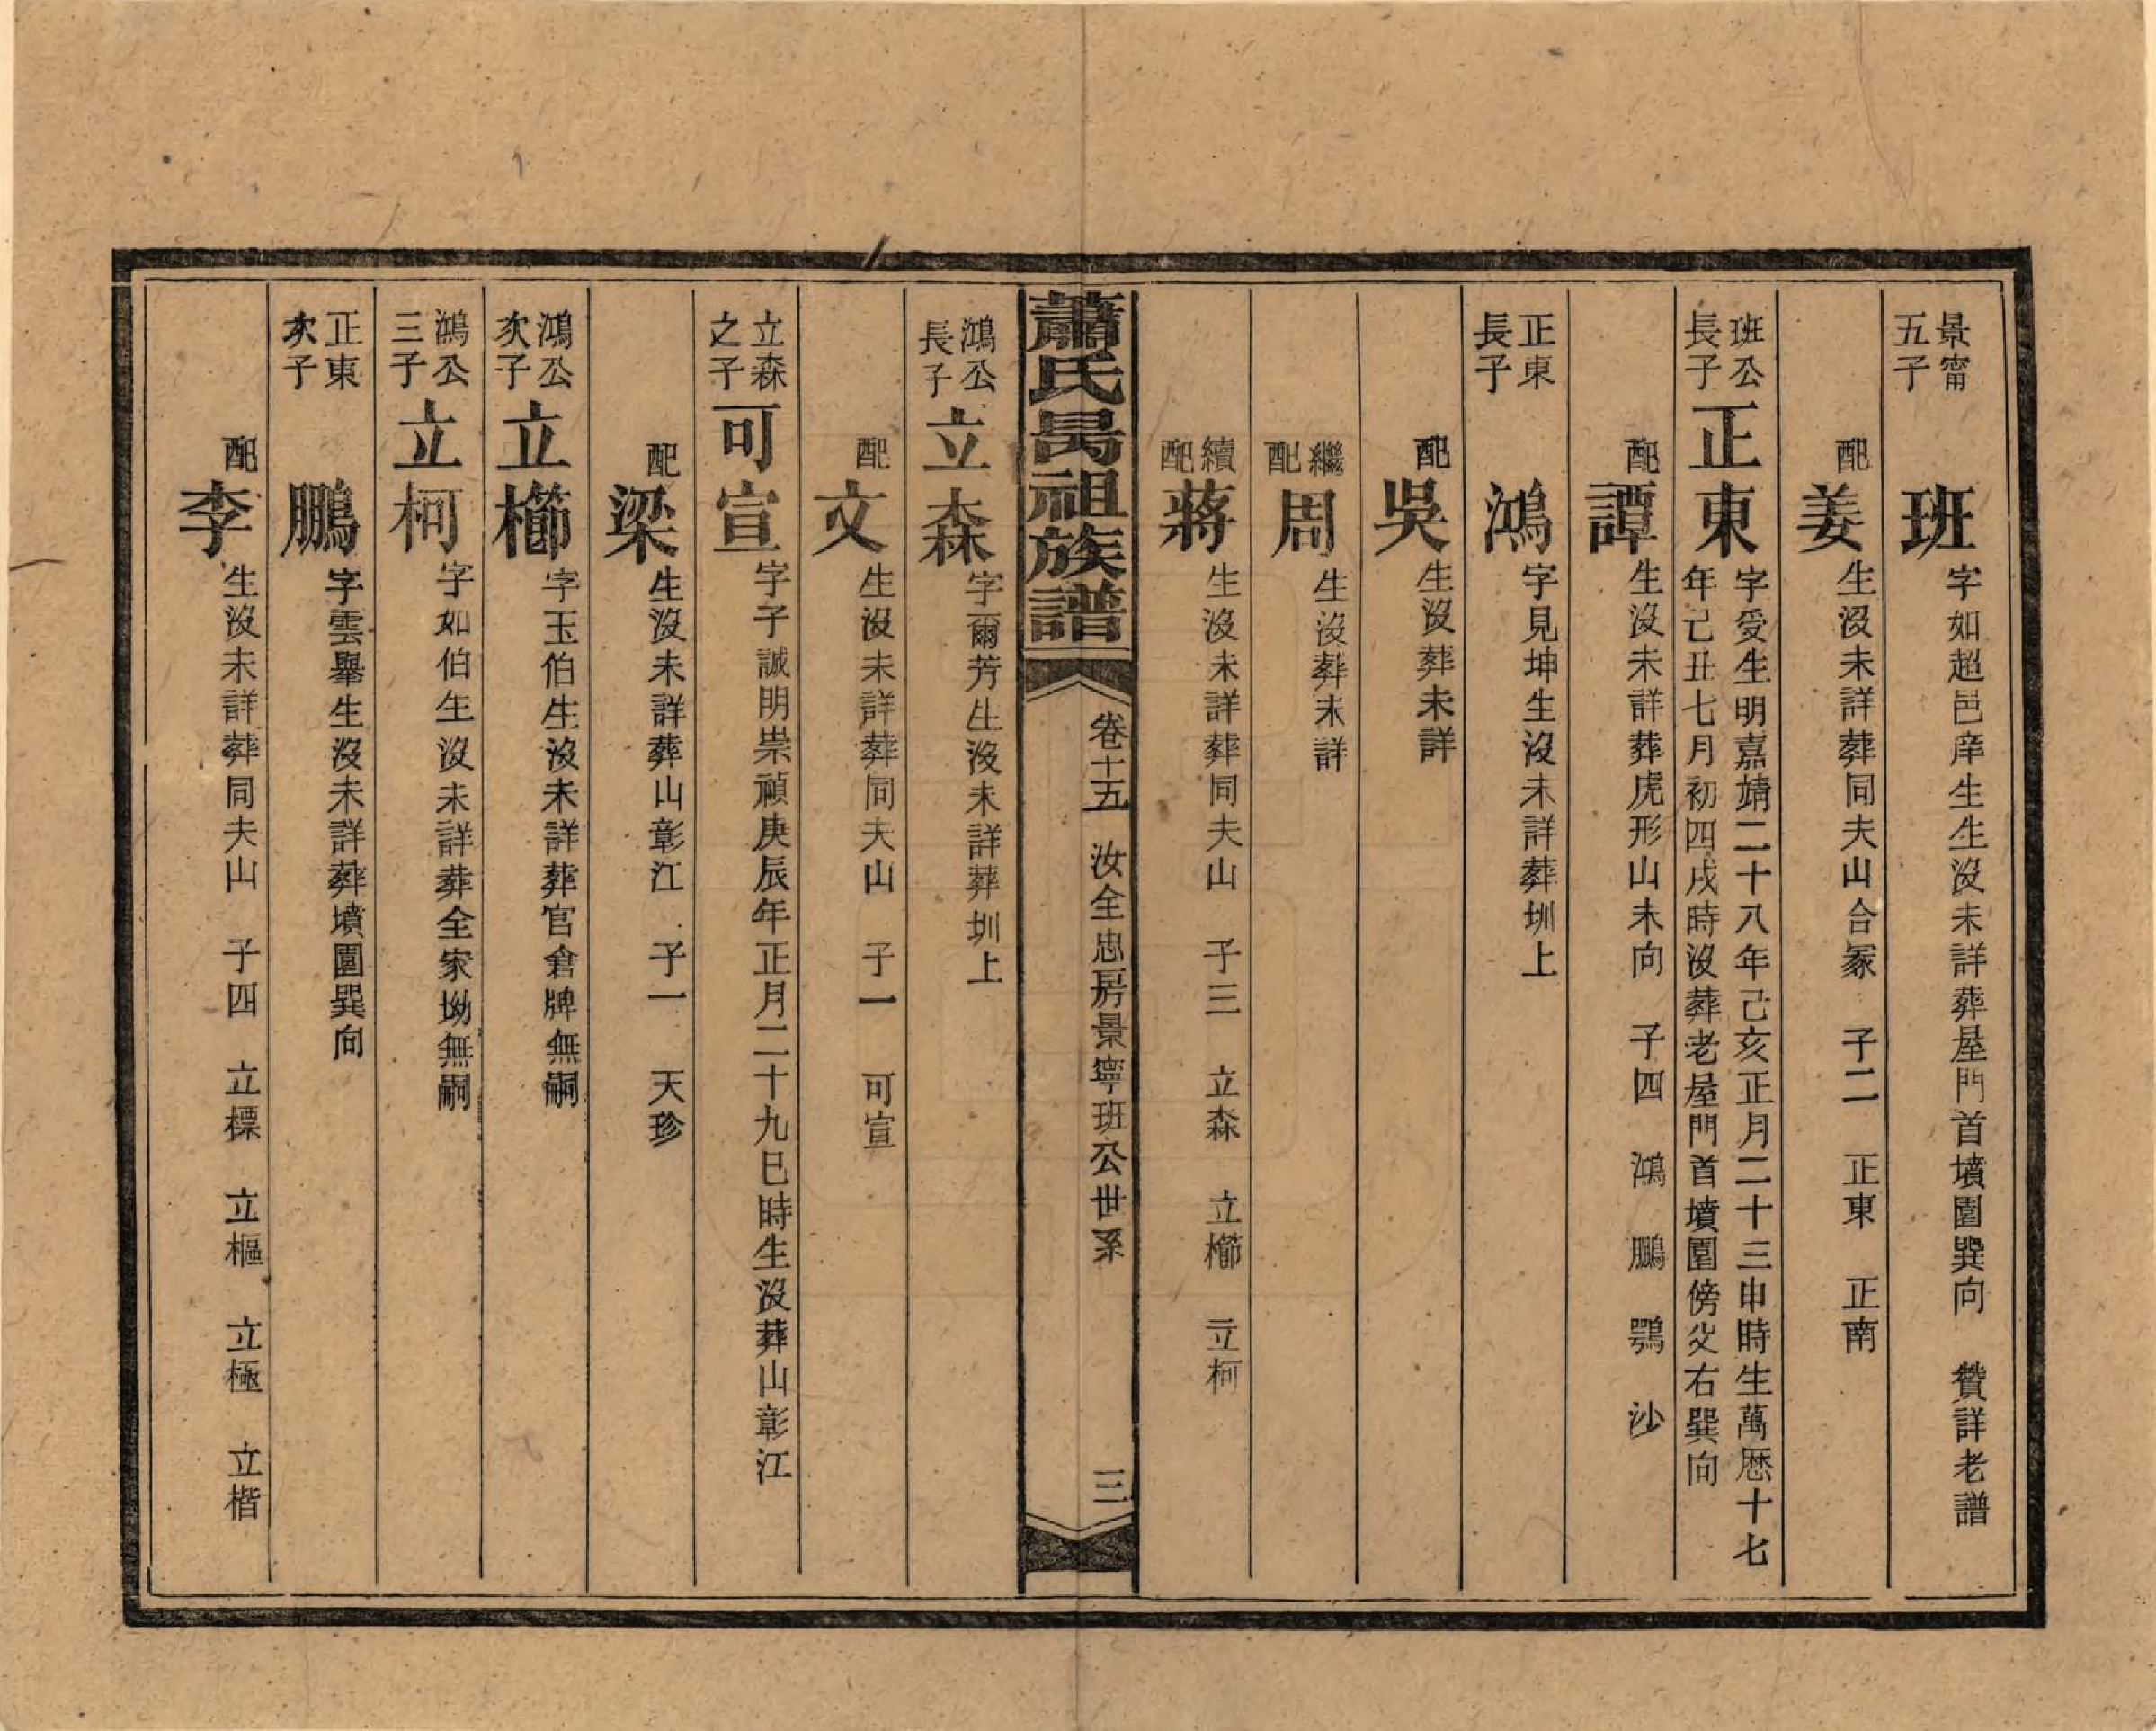 景甯五子 班 字如超邑庠生生沒未詳葬屋門首墳園巽向 贊詳老譜
配姜 生沒未詳葬同夫山合冢 子二 正東 正南
班公長子 正東 字受生明嘉靖二十八年己亥正月二十三申時生萬厯十七
年己丑七月初四戌時沒葬老屋門首墳園傍父右巽向
配譚 生沒未詳葬虎形山未向 子四 鴻 鵬 鶚 沙
正東長子 鴻 字見坤生沒未詳葬圳上
配吳 生沒葬未詳
繼配周 生沒葬未詳
續配蔣 生沒未詳葬同夫山 子三 立森 立櫛 立柯
蕭氏昺祖族譜 卷十五 汝全忠房景寧班公世系 三
鴻公長子 立森 字爾芳生沒未詳葬圳上
配文 生沒未詳葬同夫山 子一 可宣
立森之子 可宣 字子誠明崇禎庚辰年正月二十九巳時生沒葬山彰江
配梁 生沒未詳葬山彰江 子一 天珍
鴻公次子 立櫛 字玉伯生沒未詳葬官倉牌無嗣
鴻公三子 立柯 字如伯生沒未詳葬全家坳無嗣
正東次子 鵬 字雲舉生沒未詳葬墳園巽向
配李 生沒未詳葬同夫山 子四 立標 立樞 立極 立楷